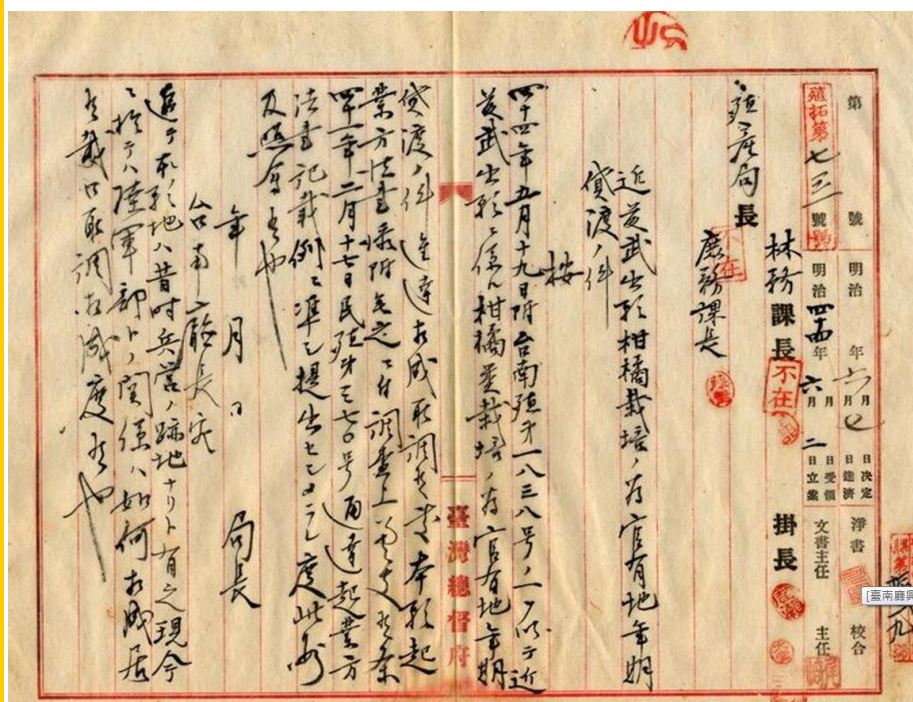 第 號
殖拓第七三 號
明治 年 六月 日決定
月 日發濟
日受領
明治四十四年六月二日立案
淨書 校合
文書主任 主任
林務課長 不在 掛長
殖產局長
庶務課長
不在
近藤武出願柑橘栽培ノ為官有地年期
貸渡ノ件
按
四十四年五月十九日附台南殖第一八三八号ノ一ヲ以テ近
藤武出願ニ係ル柑橘 栽培ノ為官有地年期
貸渡ノ件進達相成取調候處本願起
業方法書添附無之ニ付調査上 候条
四十一年二月十七日民殖第三七〇号通達起業方
法書記載例ニ準シ提出セシメ 度此段
及照會候也
年 月 日 局長
台南廳長宛
追テ本願地ハ昔時兵營ノ跡地ナリト有之現今
ニ於テハ陸軍部トノ関係ハ如何相成居
候哉御取調相成度候也
臺灣總督府
[臺南廳